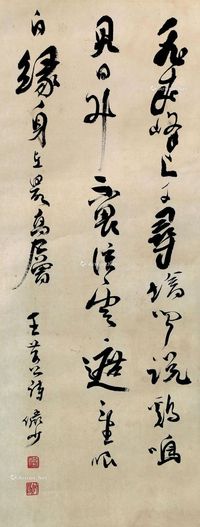 飛來峰上千尋塔聞說鷄鳴
見日升不畏浮雲遮望眼
自緣身在最高層
王荊公詩儼少